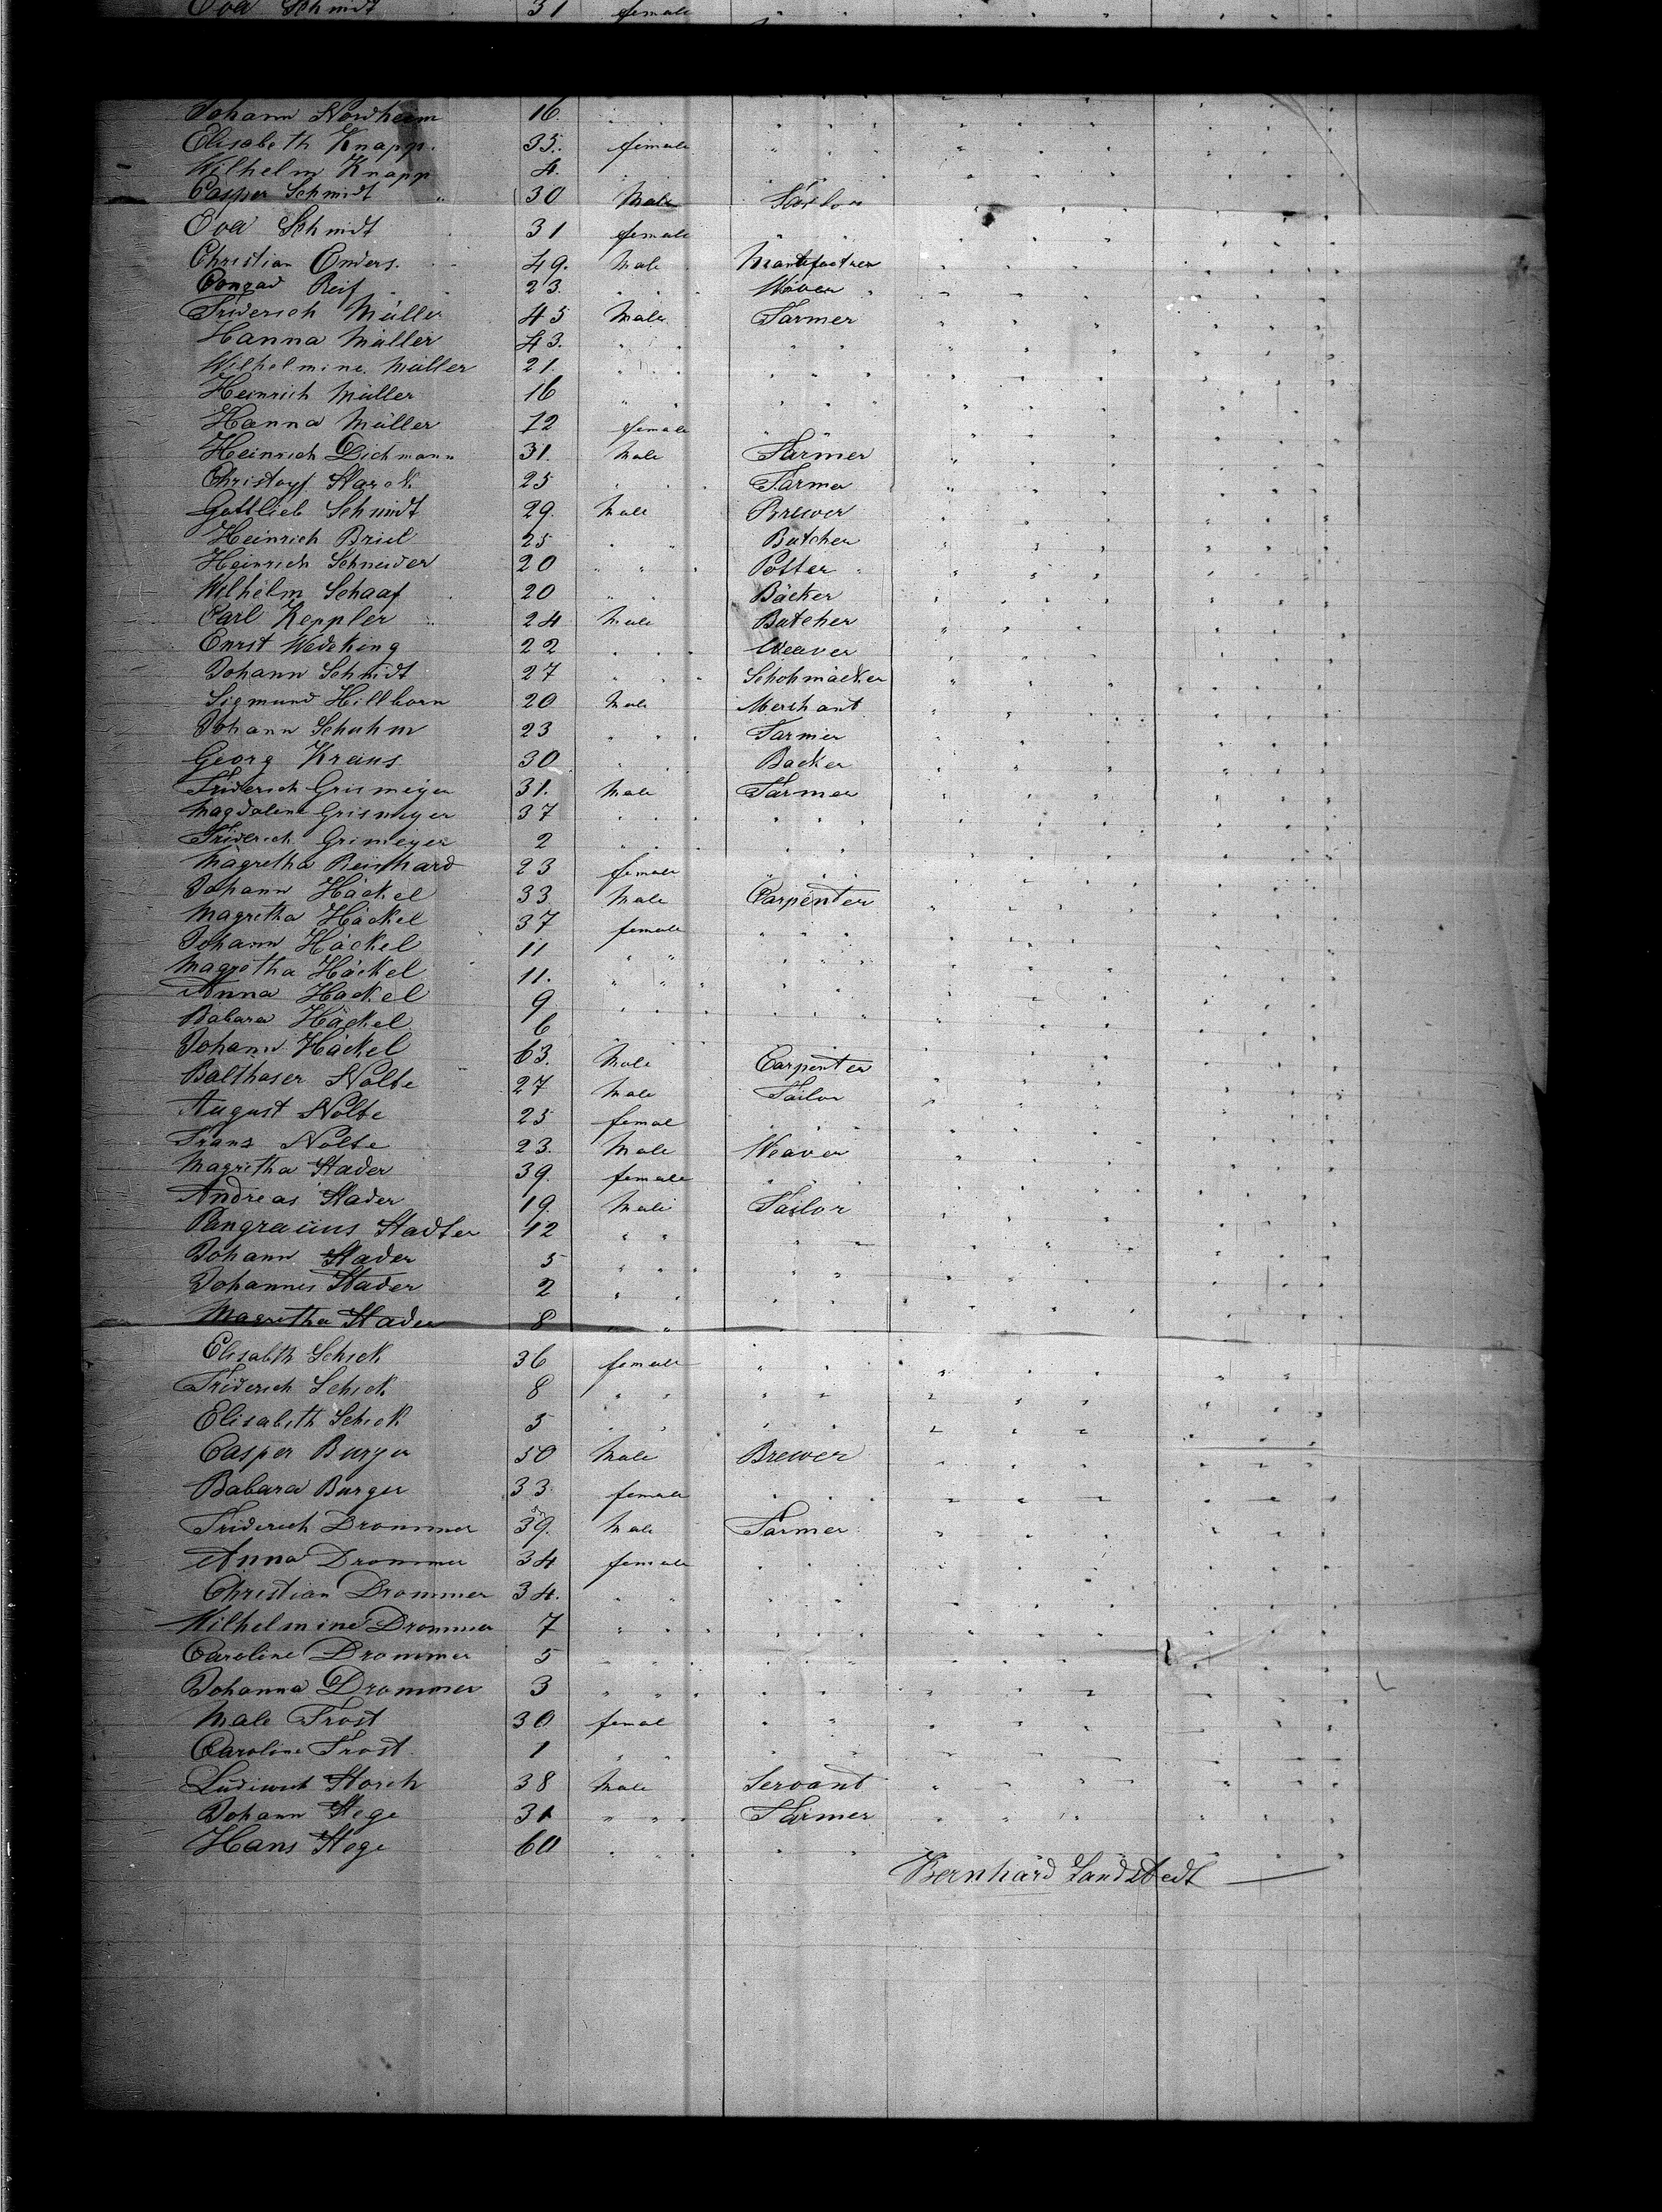 Eva Schmidt 31 female " " " " " " "
Johann Nordheim 16. " " " " " " " " "
Elisabeth Knapp. 35. female " " " " " " "
Wilhelm Knapp 4. " " " " " " " "
Casper Schmidt " 30 Male Tailor " " " " " "
Eva Schmidt 31 female " " " " " " "
Christian Enders. 49. Male Manufactner " " " " " "
Conrad Reif 23. " " Waver " " " " " "
Friderich Müller 45 Male Farmer " " " " " "
Hanna Müller 43. " " " " " " " " "
Wilhelmine Müller 21. " " " " " " " " "
Heinrich Müller 16 " " " " " " " " "
Hanna Müller 12 female " " " " " " "
Heinrich Dichmann 31. Male Farmer " " " " " "
Christoff Starck 25 " " " Farmer " " " " " "
Gottlieb Schmidt 29. Male Brewer " " " " " "
Heinrich Briel 25 " " Butcher " " " " " "
Heinrich Schneider 20 " " " Potter " " " " " "
Wilhelm Schaaf 20 " " Bäcker " " " " " "
Carl Keppler 24 Male Butcher " " " " " "
Ernst Wedeking 22 " " " Weaver " " " " " "
Johann Schmidt 27 " " " Schohmacker " " " " " "
Sigmund Hillborn 20 Male Merchant " " " " " "
Johann Schuhm 23 " " " Farmer " " " " " "
Georg Kraus 30 " " Backer " " " " " "
Friderich Grismeyer 31. Male Farmer " " " " " "
Magdalene Grismeyer 37 " " " " " " " " " "
Friderich Grimeyer 2 " " " " " " " " " "
Magretha Reinhard 23 female " " " " " " "
Johann Häckel 33. Male Carpenter " " " " " "
Magretha Häckel 37 female " " " " " " "
Johann Häckel 11 " " " " " " " " "
Magretha Häckel 11. " " " " " " " " "
Anna Hackel 9 " " " " " " " " "
Babara Häckel 6 " " " " " " " " "
Johann Häckel 63. Male Carpenter " " " " " "
Balthaser Nolte 27 Male Tailor " " " " " "
August Nolte 25 femal " " " " " " "
Franz Nolte 23. Male Weaver " " " " " "
Magretha Stader 39. female " " " " " " "
Andreas Stader 19. Male Tailor " " " " " "
Pangracius Stadter 12 " " " " " " " " "
Johann Stader 5 " " " " " " " " "
Johannes Stader 2 " " " " " " " " "
Magretha Stader 8 " " " " " " " "
Elisabth Schick 36 female " " " " " " "
Friderich Schick 8 " " " " " " " " "
Elisabeth Schick 5 " " " " " " " " "
Casper Burger 50 Male Brewer " " " " " "
Babara Burger 33. female " " " " " " "
Friderich Drommer 39. Male Farmer " " " " " "
Anna Drommer 34 female " " " " " " "
Christian Drommer 34. " " " " " " " " "
Wilhelmine Drommer 7 " " " " " " " " "
Caroline Drommer 5 " " " " " " " " "
Johanna Drommer 3 " " " " " " " " "
Male Frost 30 femal " " " " " " "
Caroline Frost. 1 " " " " " " " " "
Ludiwich Storch 38 Male Servant " " " " " "
Johann Stege 31 " " " Farmer " " " " " "
Hans Stege 60 " " " " " " " "
Bernhard Landstedt